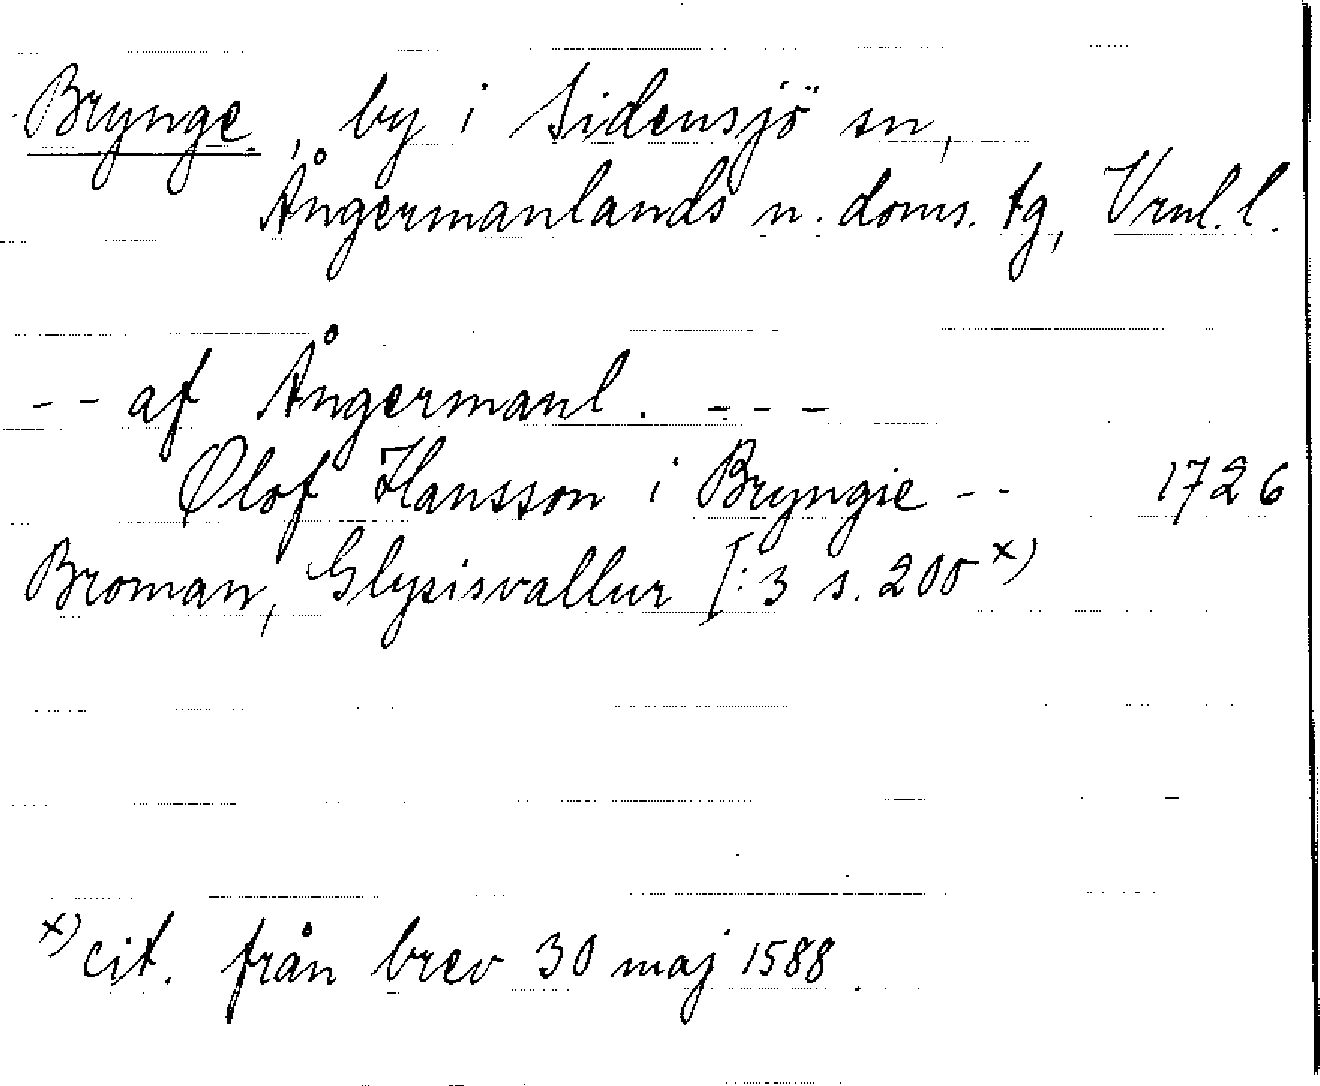 Brynge, by i Sidensjö sn,
Ångermanlands n. doms. tg, Vrnl. l.
-- af Ångermanl. ---
Olof Hansson i Bryngie -- 1726
Broman, Glysisvallur I:3 s. 200 x)
x) cit. från brev 30 maj 1588.